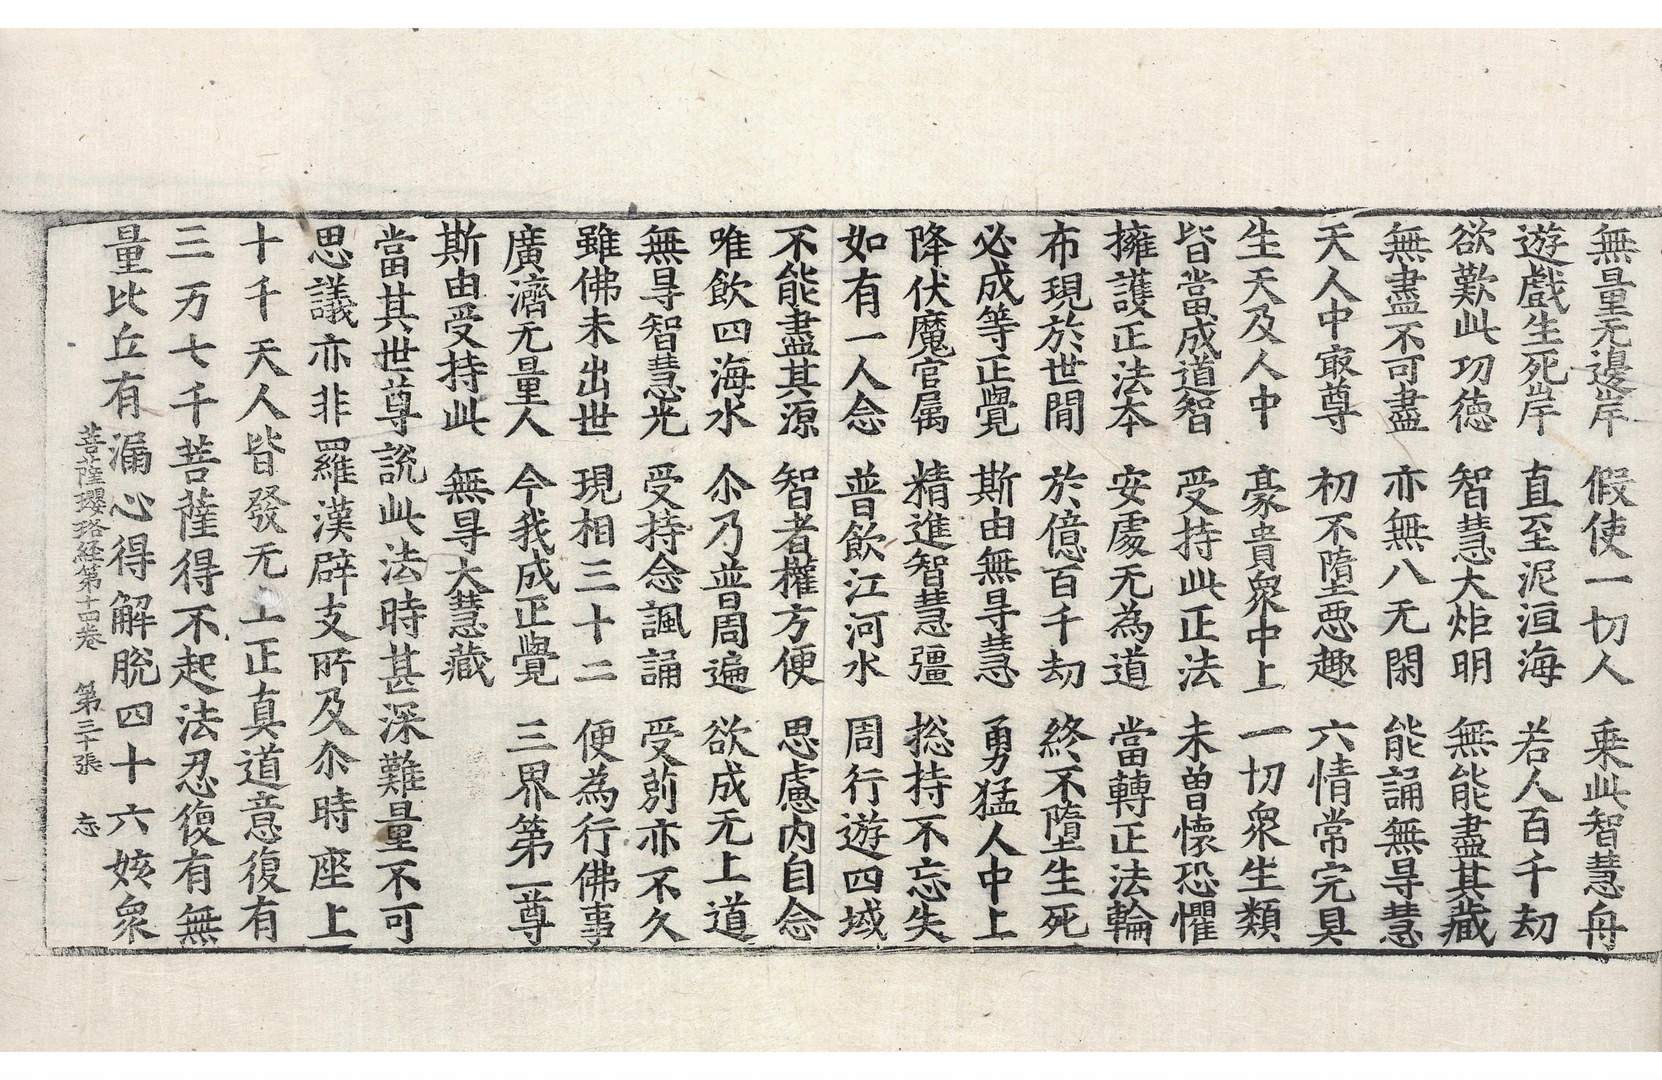 無量无邊岸 假使一切人 乘此智慧舟
遊戲生死岸 直至泥洹海 若人百千劫
欲歎此功徳 智慧大炬明 無能盡其藏
無盡不可盡 亦無八无閑 能誦無㝵慧
天人中㝡尊 初不墮惡趣 六情常完具
生天及人中 豪貴衆中上 一切衆生類
皆當成道智 受持此正法 未曽懷恐懼
擁護正法本 安處无為道 當轉正法輪
布現於世間 於億百千劫 終不墮生死
必成等正覺 斯由無㝵慧 勇猛人中上
降伏魔官属 精進智慧彊 捴持不忘失
如有一人念 普飲江河水 周行遊四域
不能盡其源 智者權方便 思慮内自念
唯飲四海水 尒乃普周遍 欲成无上道
無㝵智慧光 受持念諷誦 受莂亦不久
雖佛未出世 現相三十二 便為行佛事
廣濟无量人 今我成正覺 三界第一尊
斯由受持此 無㝵大慧藏
當其世尊說此法時甚深難量不可
思議亦非羅漢辟支所及尒時座上
十千天人皆發无上正真道意復有
三万七千菩薩得不起法忍復有無
量比丘有漏心得解脫四十六姟衆
菩薩瓔珞経第十四卷 第三十張 忘